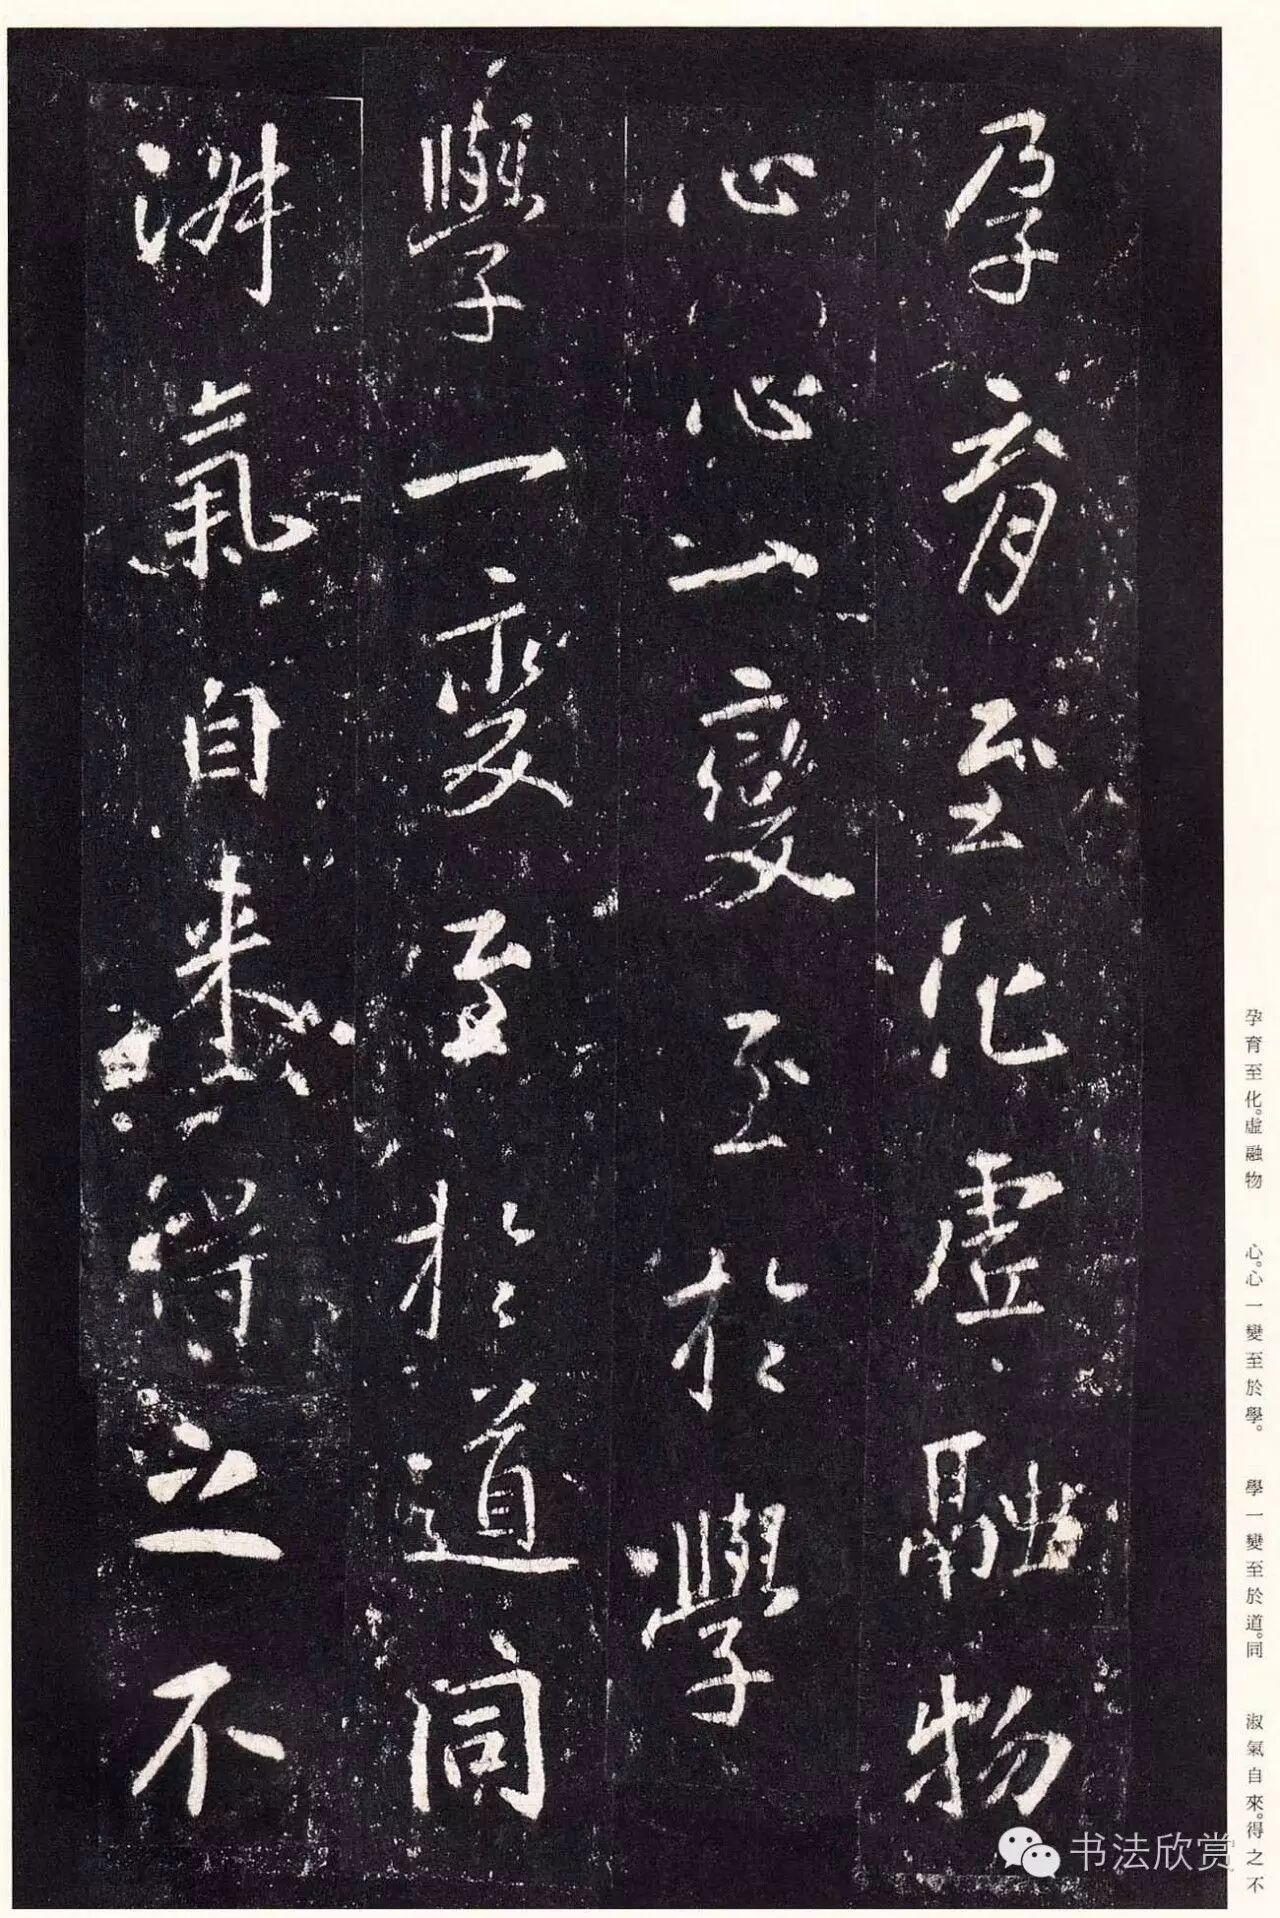 孕育至化虛融物
心心一變至於學
學一變至於道同
淑氣自來得之不
孕育至化。虛融物　心。心一變至於學。　學一變至於道。同　淑氣自來。得之不
书法欣赏